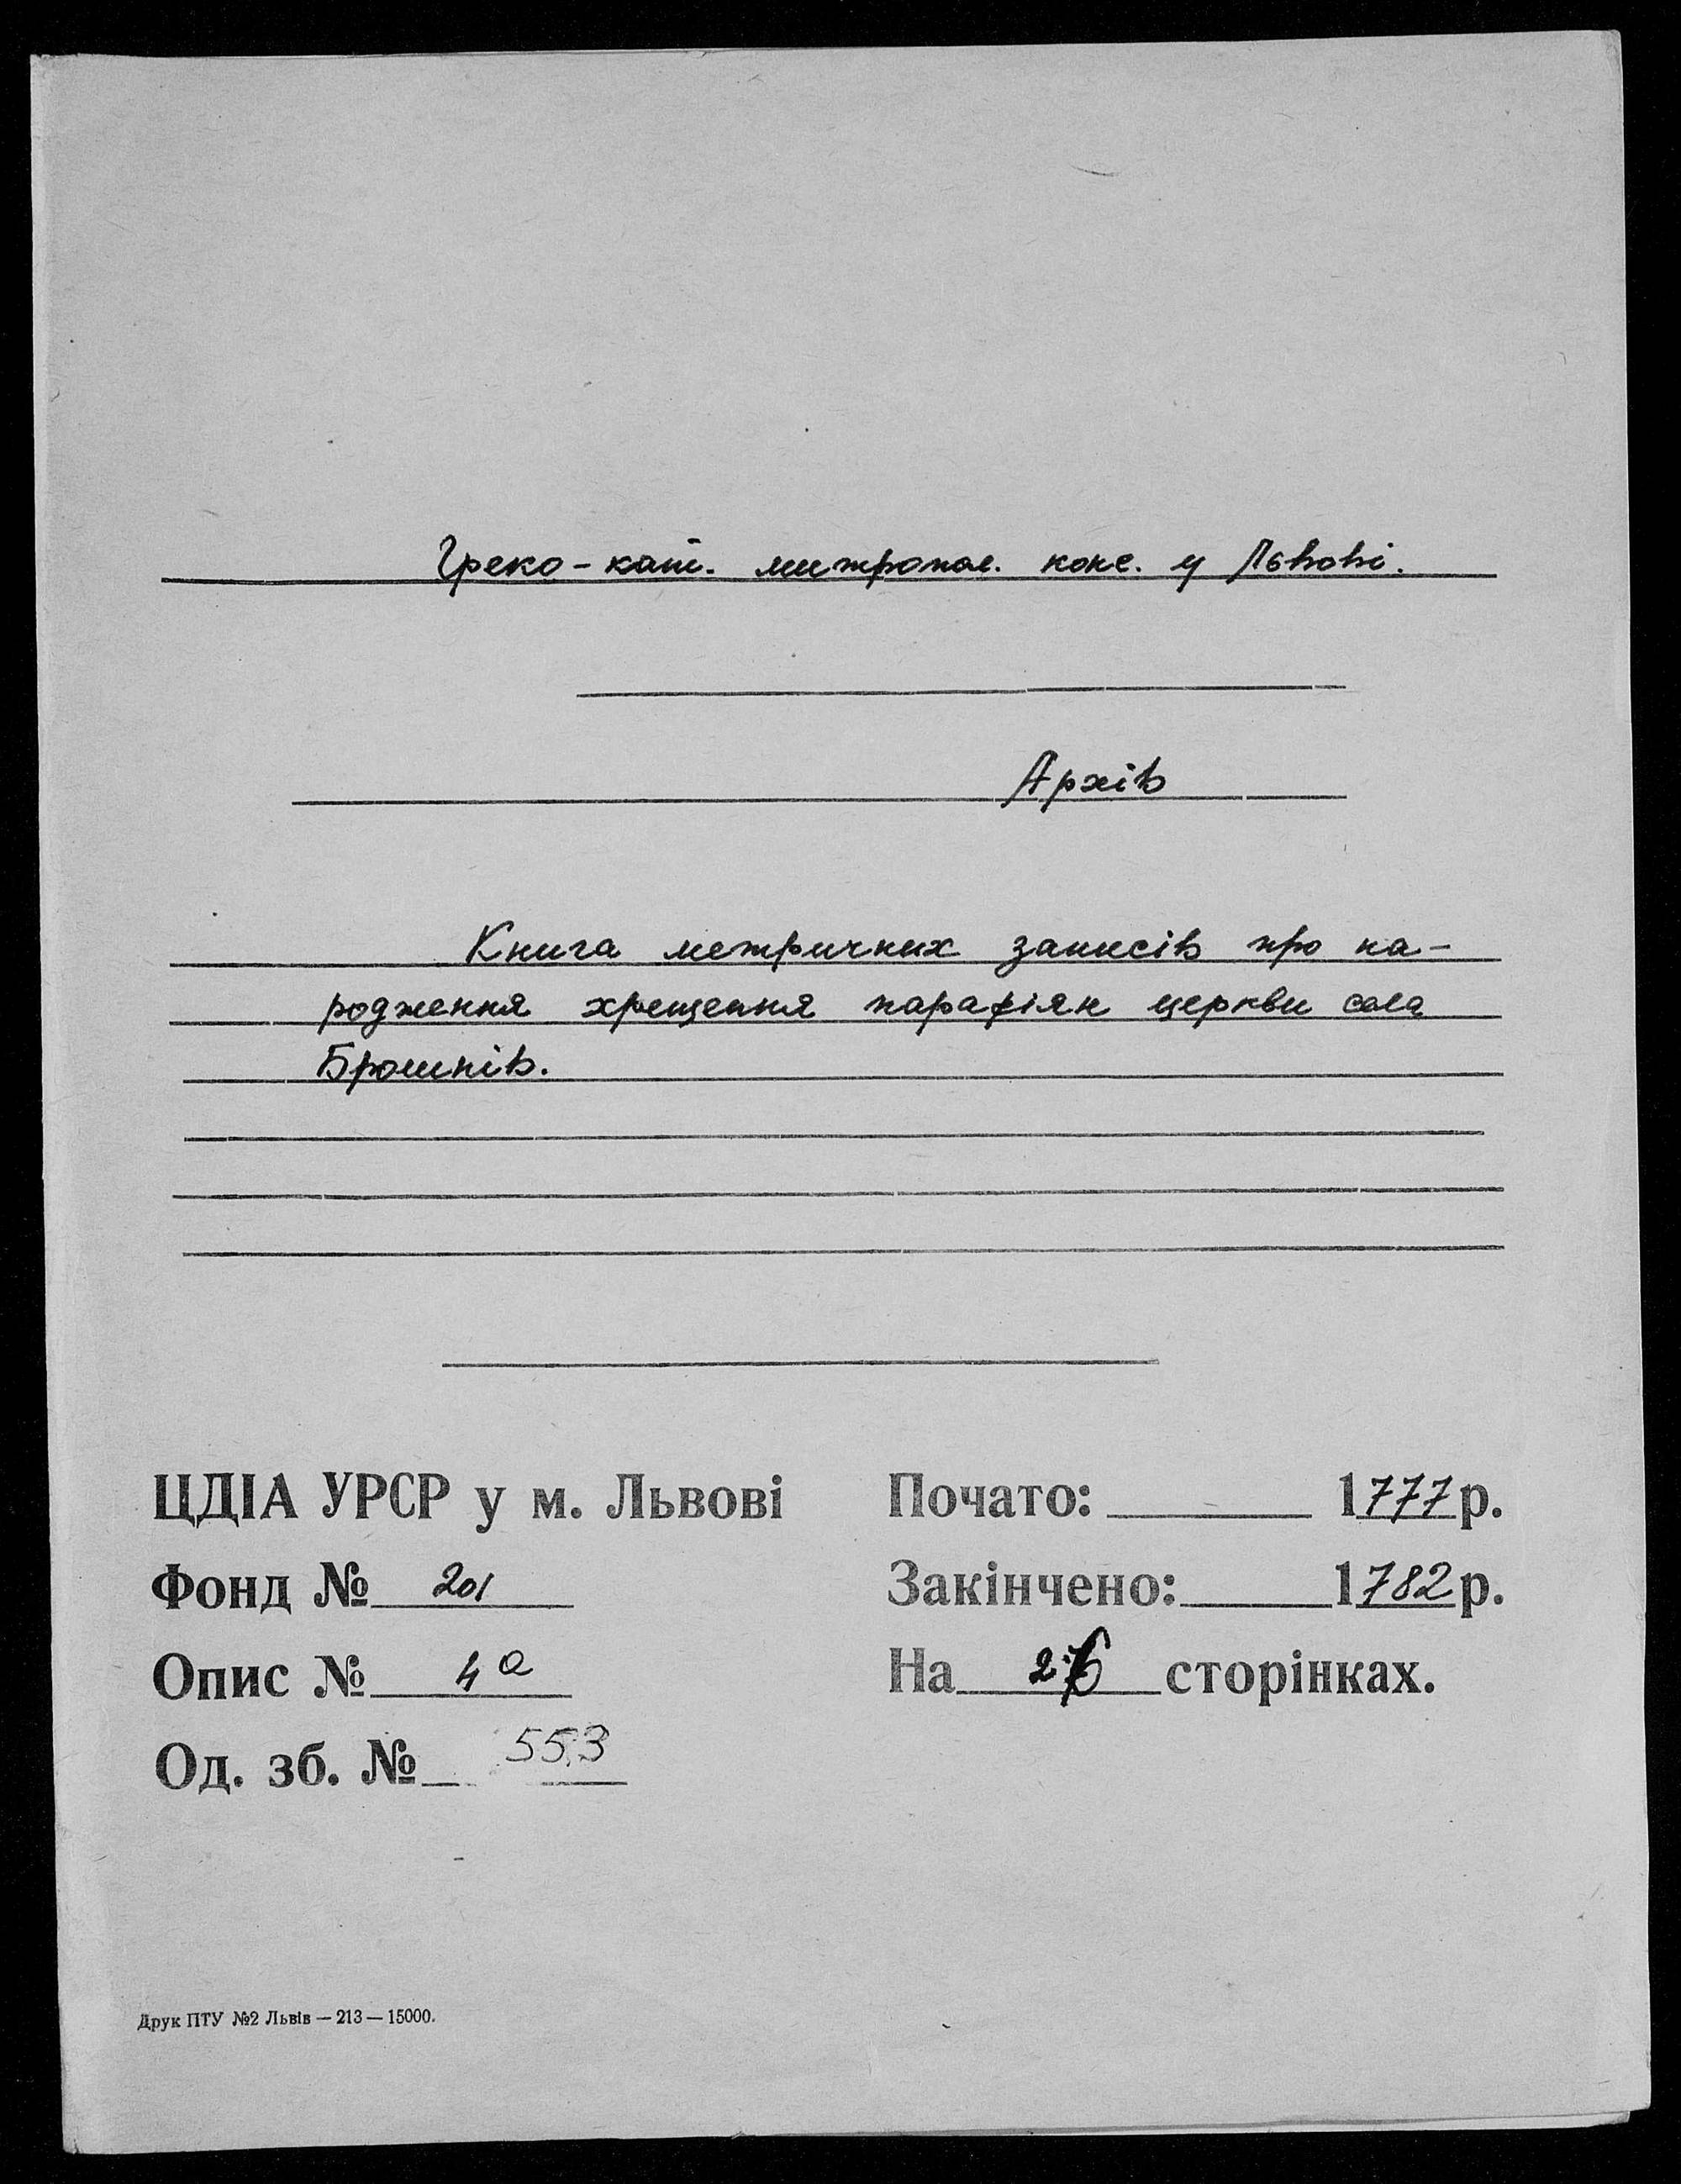 Греко-кат. митропол. конс. у Львові.
Архів
Книга метричних записів про на-
родження хрещення парафіян церкви села
Брошнів.
ЦДІА УРСР у м. Львові
Почато: 1777 р.
Фонд № 201
Закінчено: 1782 р.
Опис № 4а
На 26 сторінках.
Од. зб. № 553
Друк ПТУ №2 Львів — 213 — 15000.